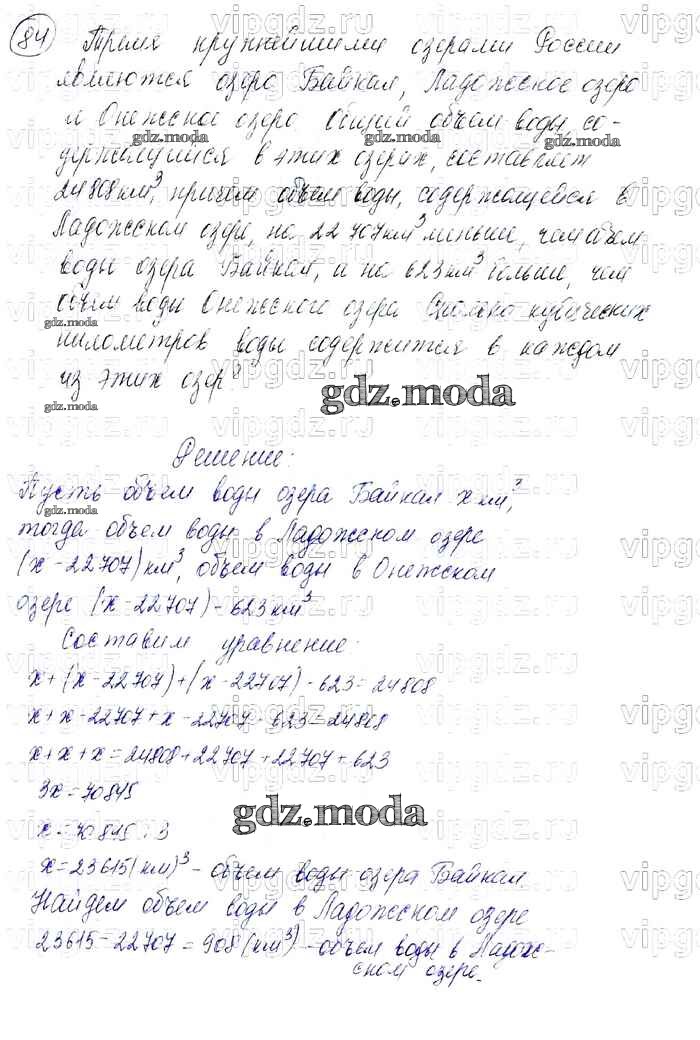 84 Тремя крупнейшими озерами России
являются озеро Байкал, Ладожское озеро
и Онежское озеро. Общий объем воды, со-
держащийся в этих озерах, составляет
24808 км³, причем объем воды, содержащейся в
Ладожском озере, на 22 707 км³ меньше, чем объем
воды озера Байкал, и на 623 км³ больше, чем
объем воды Онежского озера. Сколько кубических
километров воды содержится в каждом
из этих озер?
gdz.moda
Решение:
Пусть объем воды озера Байкал x км³,
тогда объем воды в Ладожском озере
(x - 22707) км³, объем воды в Онежском
озере (x - 22707) - 623 км³
Составим уравнение:
x + (x - 22707) + (x - 22707) - 623 = 24808
x + x - 22707 + x - 22707 - 623 = 24808
x + x + x = 24808 + 22707 + 22707 + 623
3x = 70845
gdz.moda
x = 70845 : 3
x = 23615 (км)³ - объем воды озера Байкал
Найдем объем воды в Ладожском озере
23615 - 22707 = 908 (км³) - объем воды в Ладож-
ском озере.